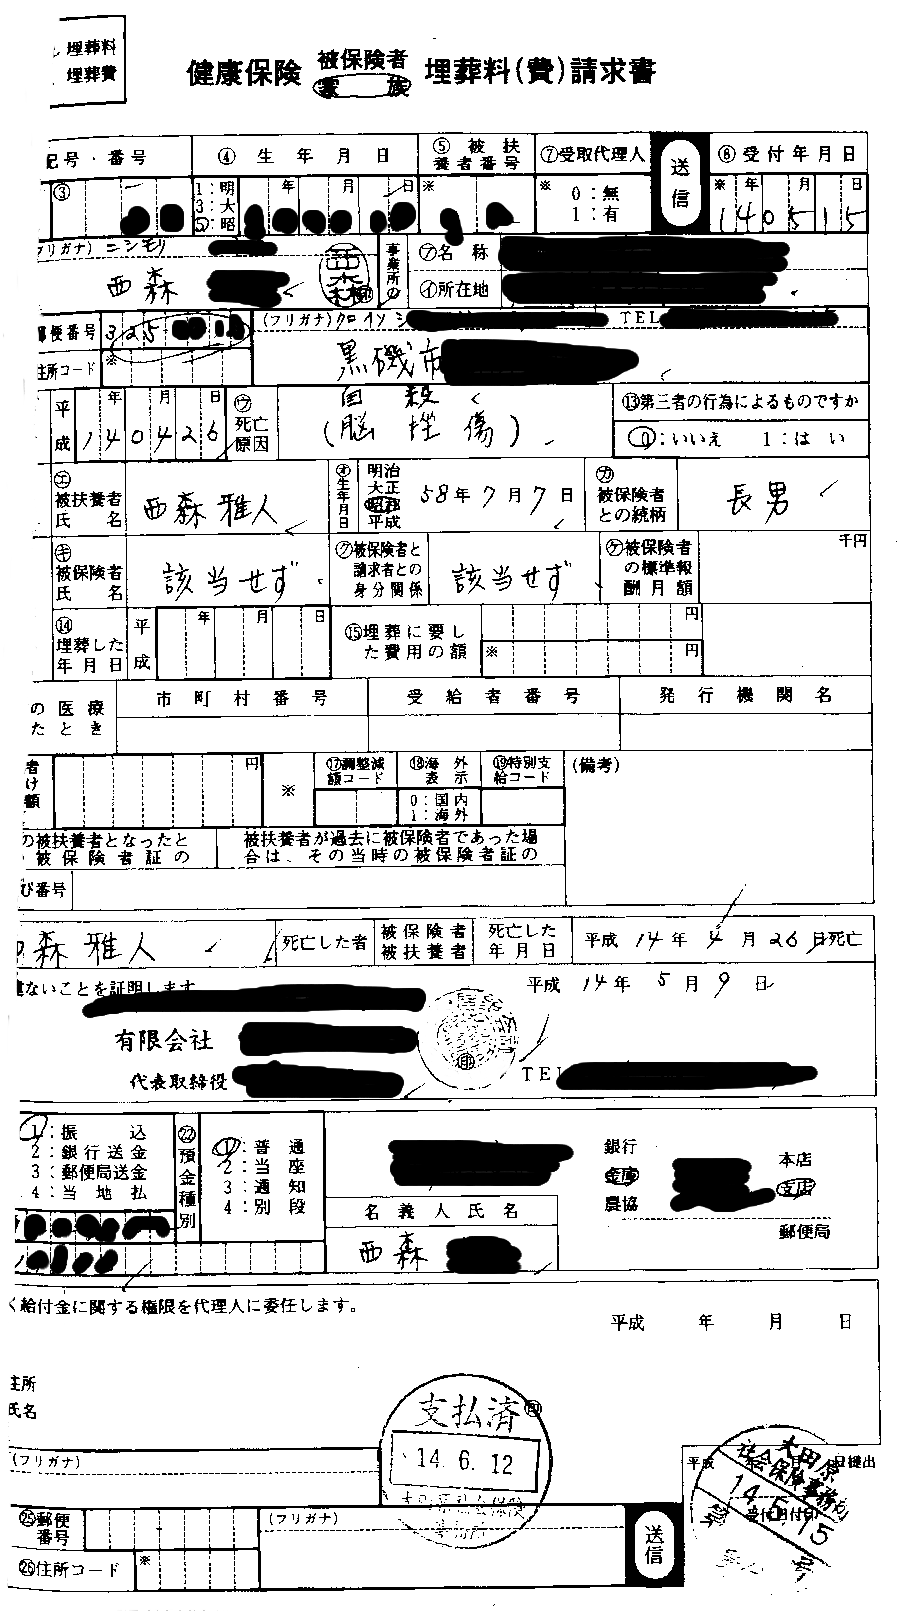 埋葬料
埋葬費
健康保険 被保険者 家族 埋葬料(費)請求書
記号・番号 ④生年月日 ⑤被扶養者番号 ⑦受取代理人 送信 ⑧受付年月日
③ 1:明 3:大 5:昭 年 月 日 ※ ※ 0:無 1:有 ※ 年 月 日 140515
(フリガナ) ニシモリ
西森 事業所の ㋐名称
㋑所在地
郵便番号 325 (フリガナ) クロイソシ TEL
住所コード ※ 黒磯市
平成 年 月 日 140426 ㋒死亡原因 自殺 (脳挫傷) ⑬第三者の行為によるものですか
0:いいえ 1:はい
㋓被扶養者氏名 西森雅人 ㋔生年月日 明治 大正 昭和 平成 58年7月7日 ㋕被保険者との続柄 長男
㋖被保険者氏名 該当せず ㋗被保険者と請求者との身分関係 該当せず ㋘被保険者の標準報酬月額 千円
⑭埋葬した年月日 平成 年 月 日 ⑮埋葬に要した費用の額 円
※ 円
の医療 たとき 市町村番号 受給者番号 発行機関名
円 ※ ⑰調整減額コード ⑱海外表示 ⑲特別支給コード (備考)
0:国内 1:海外
の被扶養者となったと 被保険者証の 被扶養者が過去に被保険者であった場合は、その当時の被保険者証の
び番号
西森雅人 死亡した者 被保険者 被扶養者 死亡した年月日 平成14年4月26日死亡
ないことを証明します 平成14年5月9日
有限会社 印
代表取締役 TEL
1:振込
2:銀行送金
3:郵便局送金
4:当地払
㉒預金種別
1:普通
2:当座
3:通知
4:別段
銀行 金庫 農協
本店 支店
郵便局
名義人氏名
西森
く給付金に関する権限を代理人に委任します。
平成 年 月 日
住所
氏名 印
支払済
14.6.12
(フリガナ)
平成 日提出
大田原
社会保険事務所
14.5.15
受付日付印
第 号
㉕郵便番号 (フリガナ) 送信
㉖住所コード ※